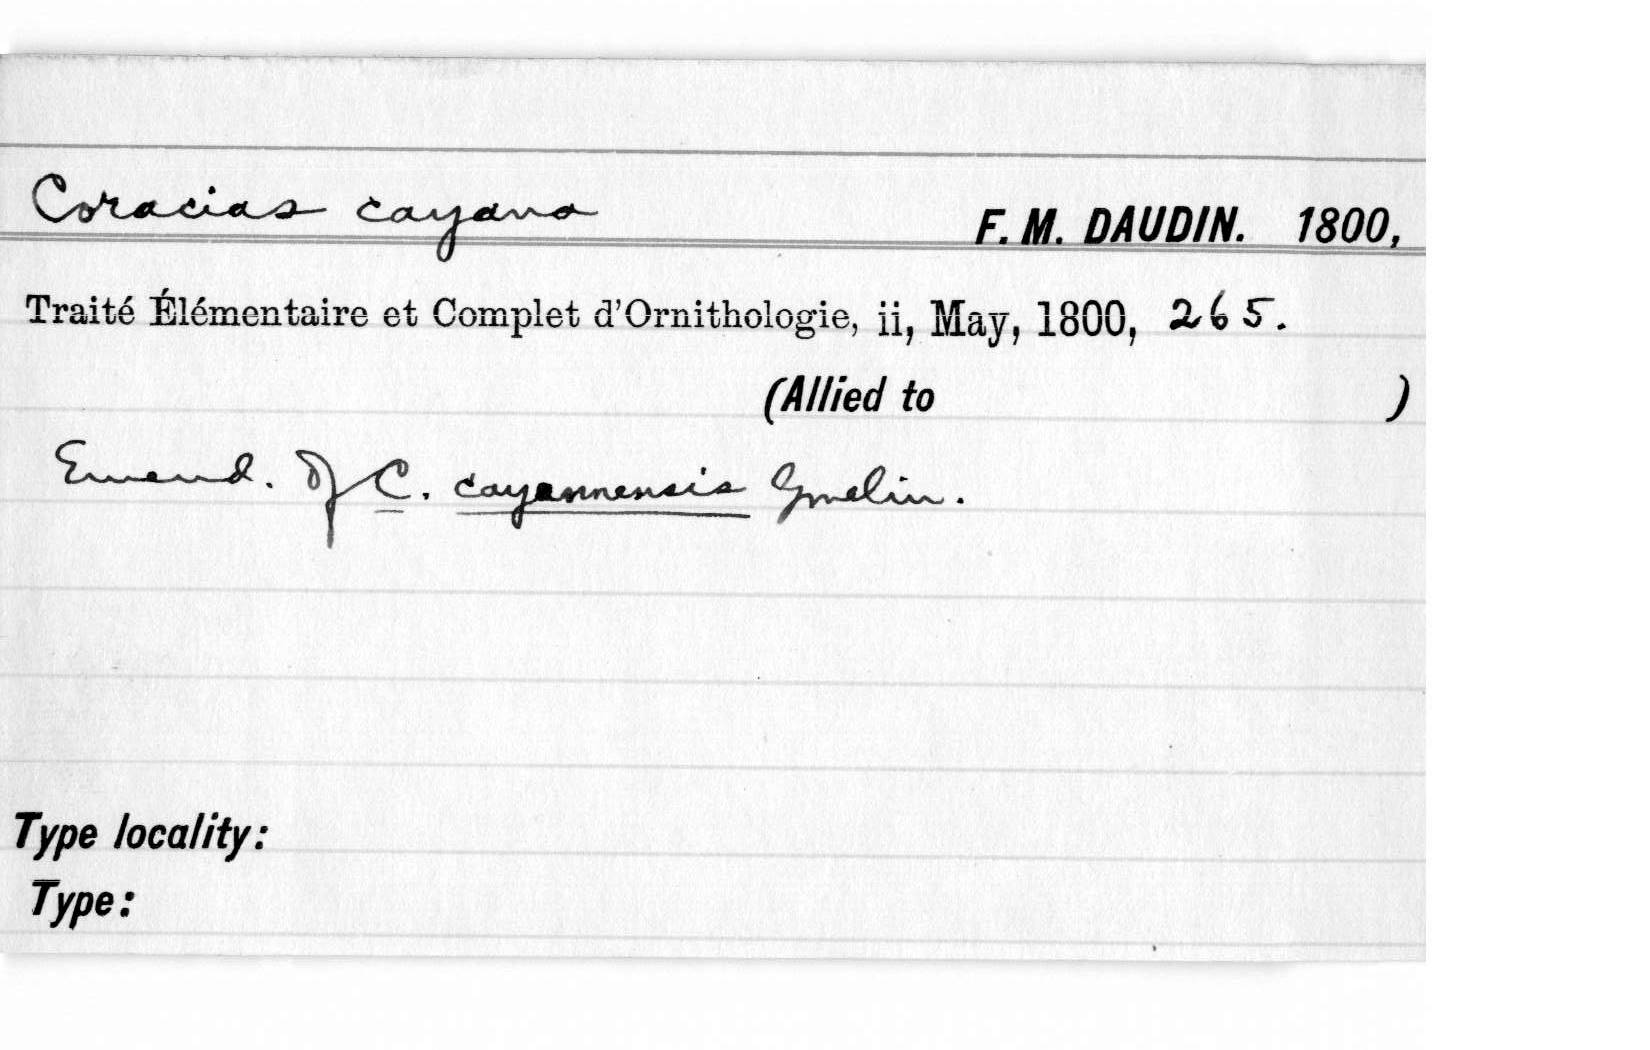 Coracias cayana F. M. DAUDIN. 1800,
Traité Élémentaire et Complet d'Ornithologie, ii, May, 1800, 265.
(Allied to )
Emend. of C. cayennensis Gmelin.
Type locality:
Type: